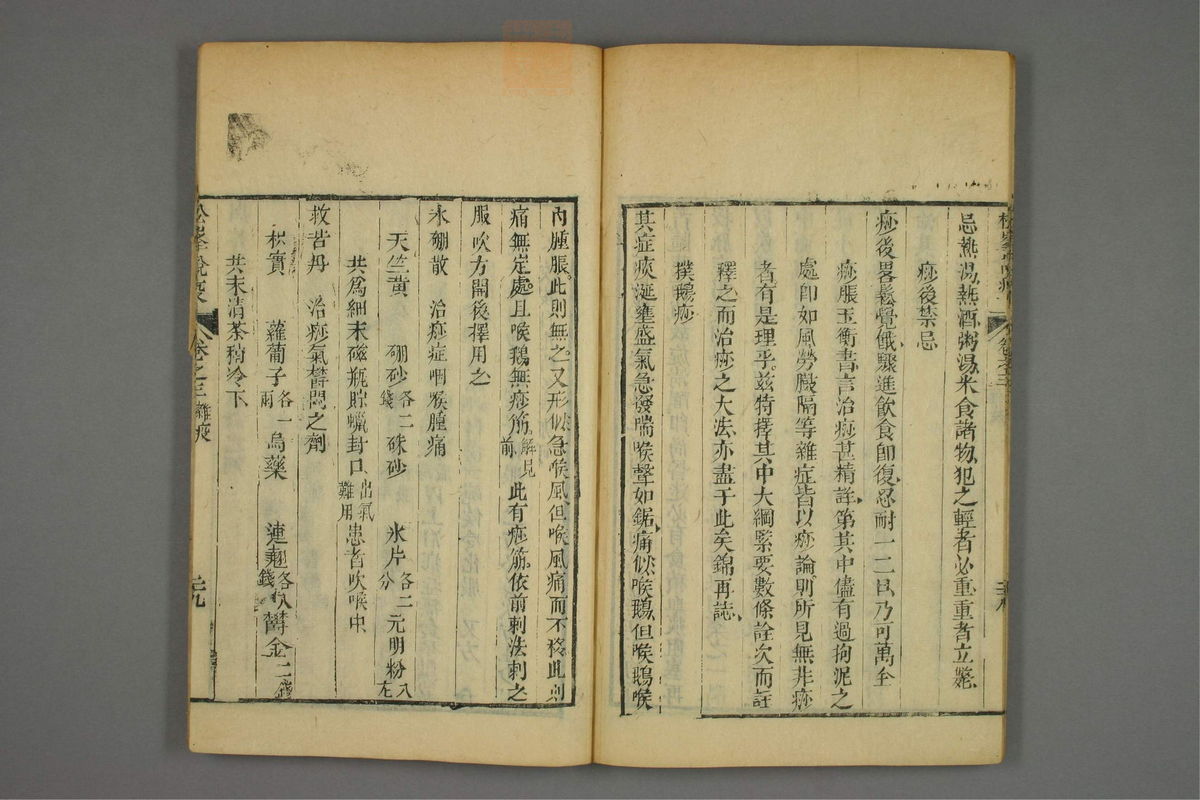 忌熱湯熱酒粥湯米食諸物犯之輕者必重重者立斃
痧後禁忌
痧後畧鬆覺餓驟進飲食即復忍耐一二日乃可萬全
痧脹玉衡書言治痧甚精詳第其中儘有過拘泥之
處即如風勞臌隔等雜症皆以痧論則所見無非痧
者有是理乎茲特擇其中大綱緊要數條詮次而註
釋之而治痧之大法亦盡于此矣錦再誌
撲鵝痧
其症痰涎壅盛氣急發喘喉聲如鋸痛似喉鵝但喉鵝喉
內腫脹此則無之又形似急喉風但喉風痛而不移此則
痛無定處且喉鵝無痧筋解見前此有痧筋依前刺法刺之
服吹方開後擇用之
氷硼散 治痧症咽喉腫痛
天竺黃 硼砂各二錢 硃砂 氷片各二分 元明粉八厷
共爲細末磁瓶貯蠟封口出氣難用患者吹喉中
救苦丹 治痧氣欝悶之劑
枳實 蘿蔔子各一兩 烏藥 連翹各八錢 欝金二錢
共末清茶稍冷下
松峯說疫 卷之三雜疫 二九